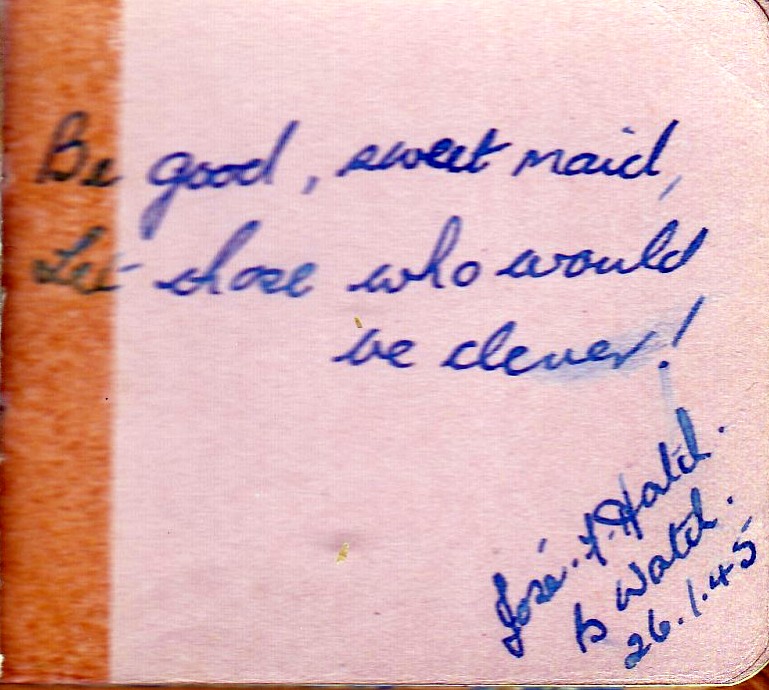 Be good, sweet maid,
Let those who would
be clever!
José. F. Hatch.
B Watch.
26.1.45